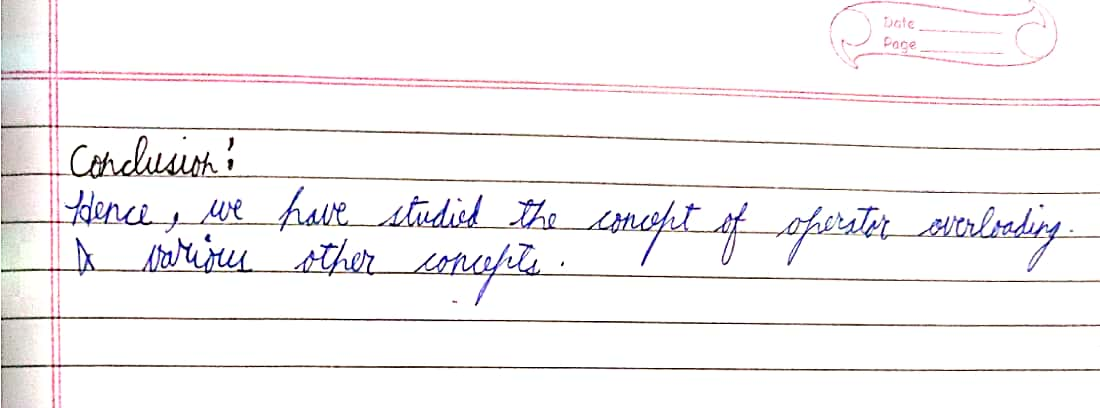 Date
Page
Conclusion:
Hence, we have studied the concept of operator overloading.
& various other concepts.